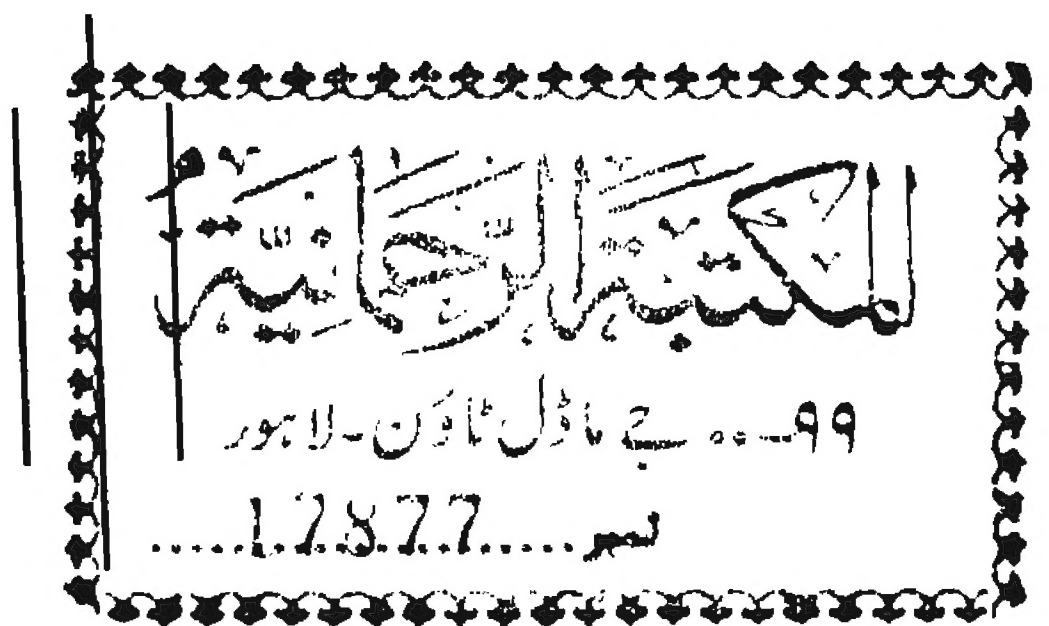 المکتبۃ الرحمانیۃ
۹۹... جے ماڈل ٹاؤن - لاہور
نمبر.....17877.....